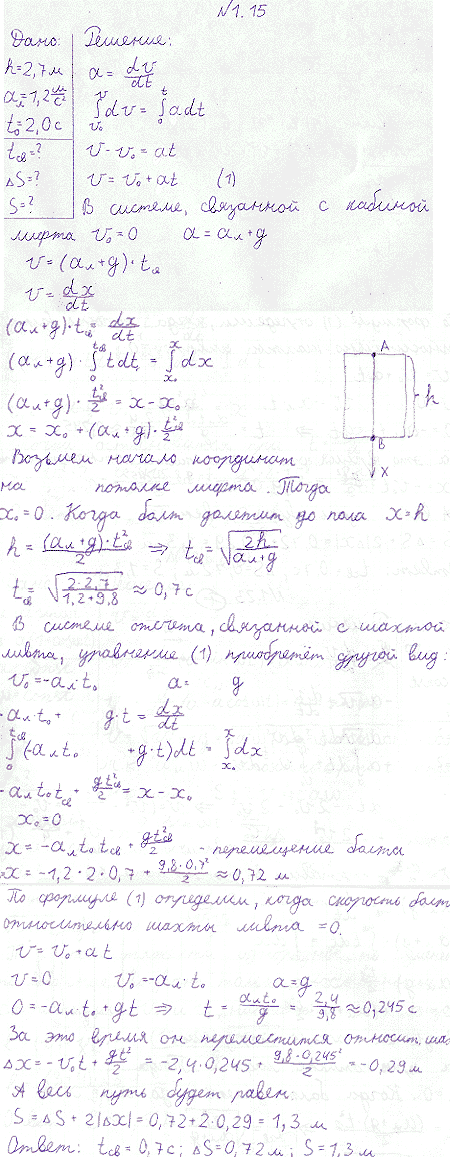 №1.15
Дано: Решение:
h=2,7м a = dv/dt
aл=1,2 м/с² ∫dv = ∫adt
t₀=2,0с
tсв=? v-v₀=at
ΔS=? v=v₀+at (1)
S=? В системе, связанной с кабиной
лифта v₀=0 a=aл+g
v=(aл+g)·tсв
v=dx/dt
(aл+g)·tсв=dx/dt
(aл+g)·∫tdt=∫dx
(aл+g)·t²св/2=x-x₀
x=x₀+(aл+g)·t²св/2
A
h
B
x
Возьмем начало координат
на потолке лифта. Тогда
x₀=0. Когда болт долетит до пола x=h
h=(aл+g)·t²св/2 ⇒ tсв=√(2h/(aл+g))
tсв=√(2·2,7/(1,2+9,8))≈0,7с
В системе отсчета, связанной с шахтой
ливта, уравнение (1) приобретёт другой вид:
v₀=-aл·t₀ a= g
-aлt₀+ g·t=dx/dt
∫(-aлt₀ +g·t)dt=∫dx
-aлt₀tсв+gt²св/2=x-x₀
x₀=0
x=-aлt₀tсв+gt²св/2 - перемещение болта
x=-1,2·2·0,7+9,8·0,7²/2≈0,72 м
По формуле (1) определим, когда скорость болт
относительно шахты ливта =0.
v=v₀+at
v=0 v₀=-aл·t₀ a=g
0=-aл·t₀+gt ⇒ t=aлt₀/g=2,4/9,8≈0,245с
За это время он переместится относит. шах
Δx=-v₀t+gt²/2=-2,4·0,245+9,8·0,245²/2=-0,29м
А весь путь будет равен
S=ΔS+2|Δx|=0,72+2·0,29=1,3 м
Ответ: tсв=0,7с; ΔS=0,72м; S=1,3м